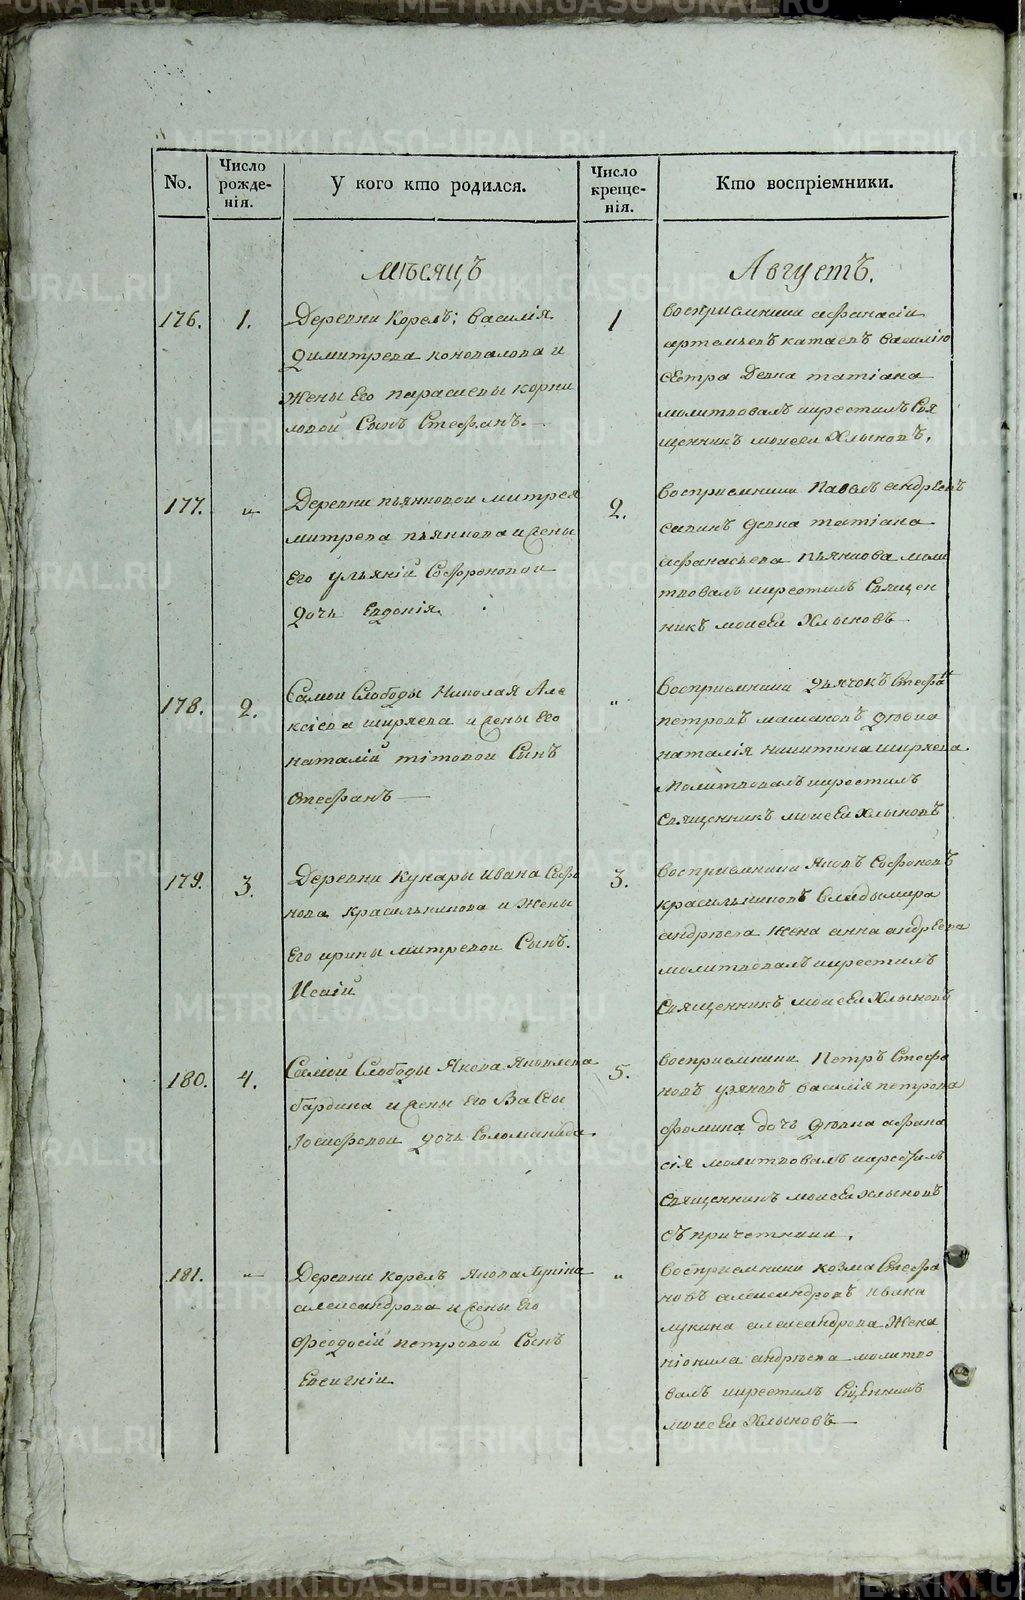 No.
Число рожде- нія.
У кого кто родился.
Число креще- нія.
Кто воспріемники.
мѣсяцъ
Августъ.
176.
1.
Деревни Корелъ; василія
Димитрева коновалова и
жены Его парасковы корни
ловой Сынъ Стефанъ.
1
воспріемники афанасіи
артемьевъ катаевъ василію
сестра Девка татіана
молитвовалъ икрестилъ Свя
щенникъ моисеи Хлыновъ.
177.
„
Деревни пьянковой митрея
митрева пьянкова и жены
Его ульяній Софроновой
Дочь Евдокія.
2.
воспріемники Павелъ андреевъ
савинъ девка татіана
афанасьева пьянкова моли
твовалъ икрестилъ Священ
никъ моисеи Хлыновъ
178.
2.
Самой Слободы Николая Але
ксіева ширяева и жены Его
наталій тітовой Сынъ
стефанъ
„
воспріемники дьячокъ Стефанъ
петровъ
наталія никитина ширяева
молитвовалъ икрестилъ
священникъ моисеи хлыновъ
179.
3.
Деревни Кунары ивана Софро
нова красильникова и жены
Его ирины митревой Сынъ.
Исаій
3.
воспріемники яковъ Софроновъ
красильниковъ Владымира
андреева жена анна андреева
молитвовалъ икрестилъ
Священникъ моисеи Хлыновъ
180.
4.
Самой Слободы Якова Яковлева
бардина и жены Его Вассы
Іосифовой дочь Соломанида
5.
воспріемники Петръ Стефа
новъ узяновъ василія петрова
фомина дочь девка афана
сія молитвовалъ икрестилъ
священникъ моисеи хлыновъ
съ причетники.
181.
„
Деревни корелъ якова лукина
александрова и жены Его
феодосіи петровой Сынъ
Евсигніи
„
воспріемники козма Стефа
новъ александровъ ивана
лукина александрова жена
неонила андреева молитво
валъ икрестилъ Сщенникъ
моисеи Хлыновъ
METRIKI.GASO-URAL.RU